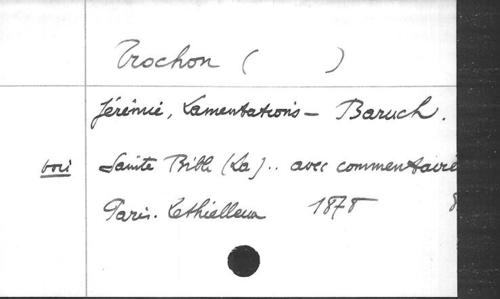 Trochon ( )
Jérémie, Lamentations – Baruch.
voir Sainte Bible (La).. avec commentaire
Paris. Lethielleux 1878